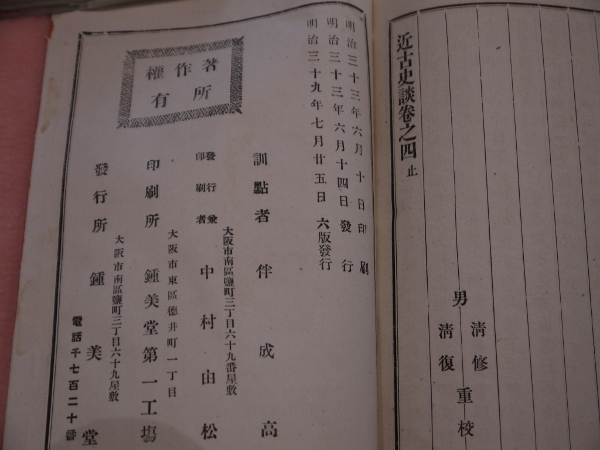 近古史談卷之四 止
男 清修 重校
清復
著作權
所有
明治三十三年六月十日印刷
明治三十三年六月十四日發行
明治三十九年七月廿五日六版發行
訓點者 伴成高
大阪市南區鹽町三丁目六十九番屋敷
發行兼印刷者 中村由松
大阪市東區德井町一丁目
印刷所 鍾美堂第一工塲
大阪市南區鹽町三丁目六十九屋敷
發行所 鍾美堂
電話千七百二十番